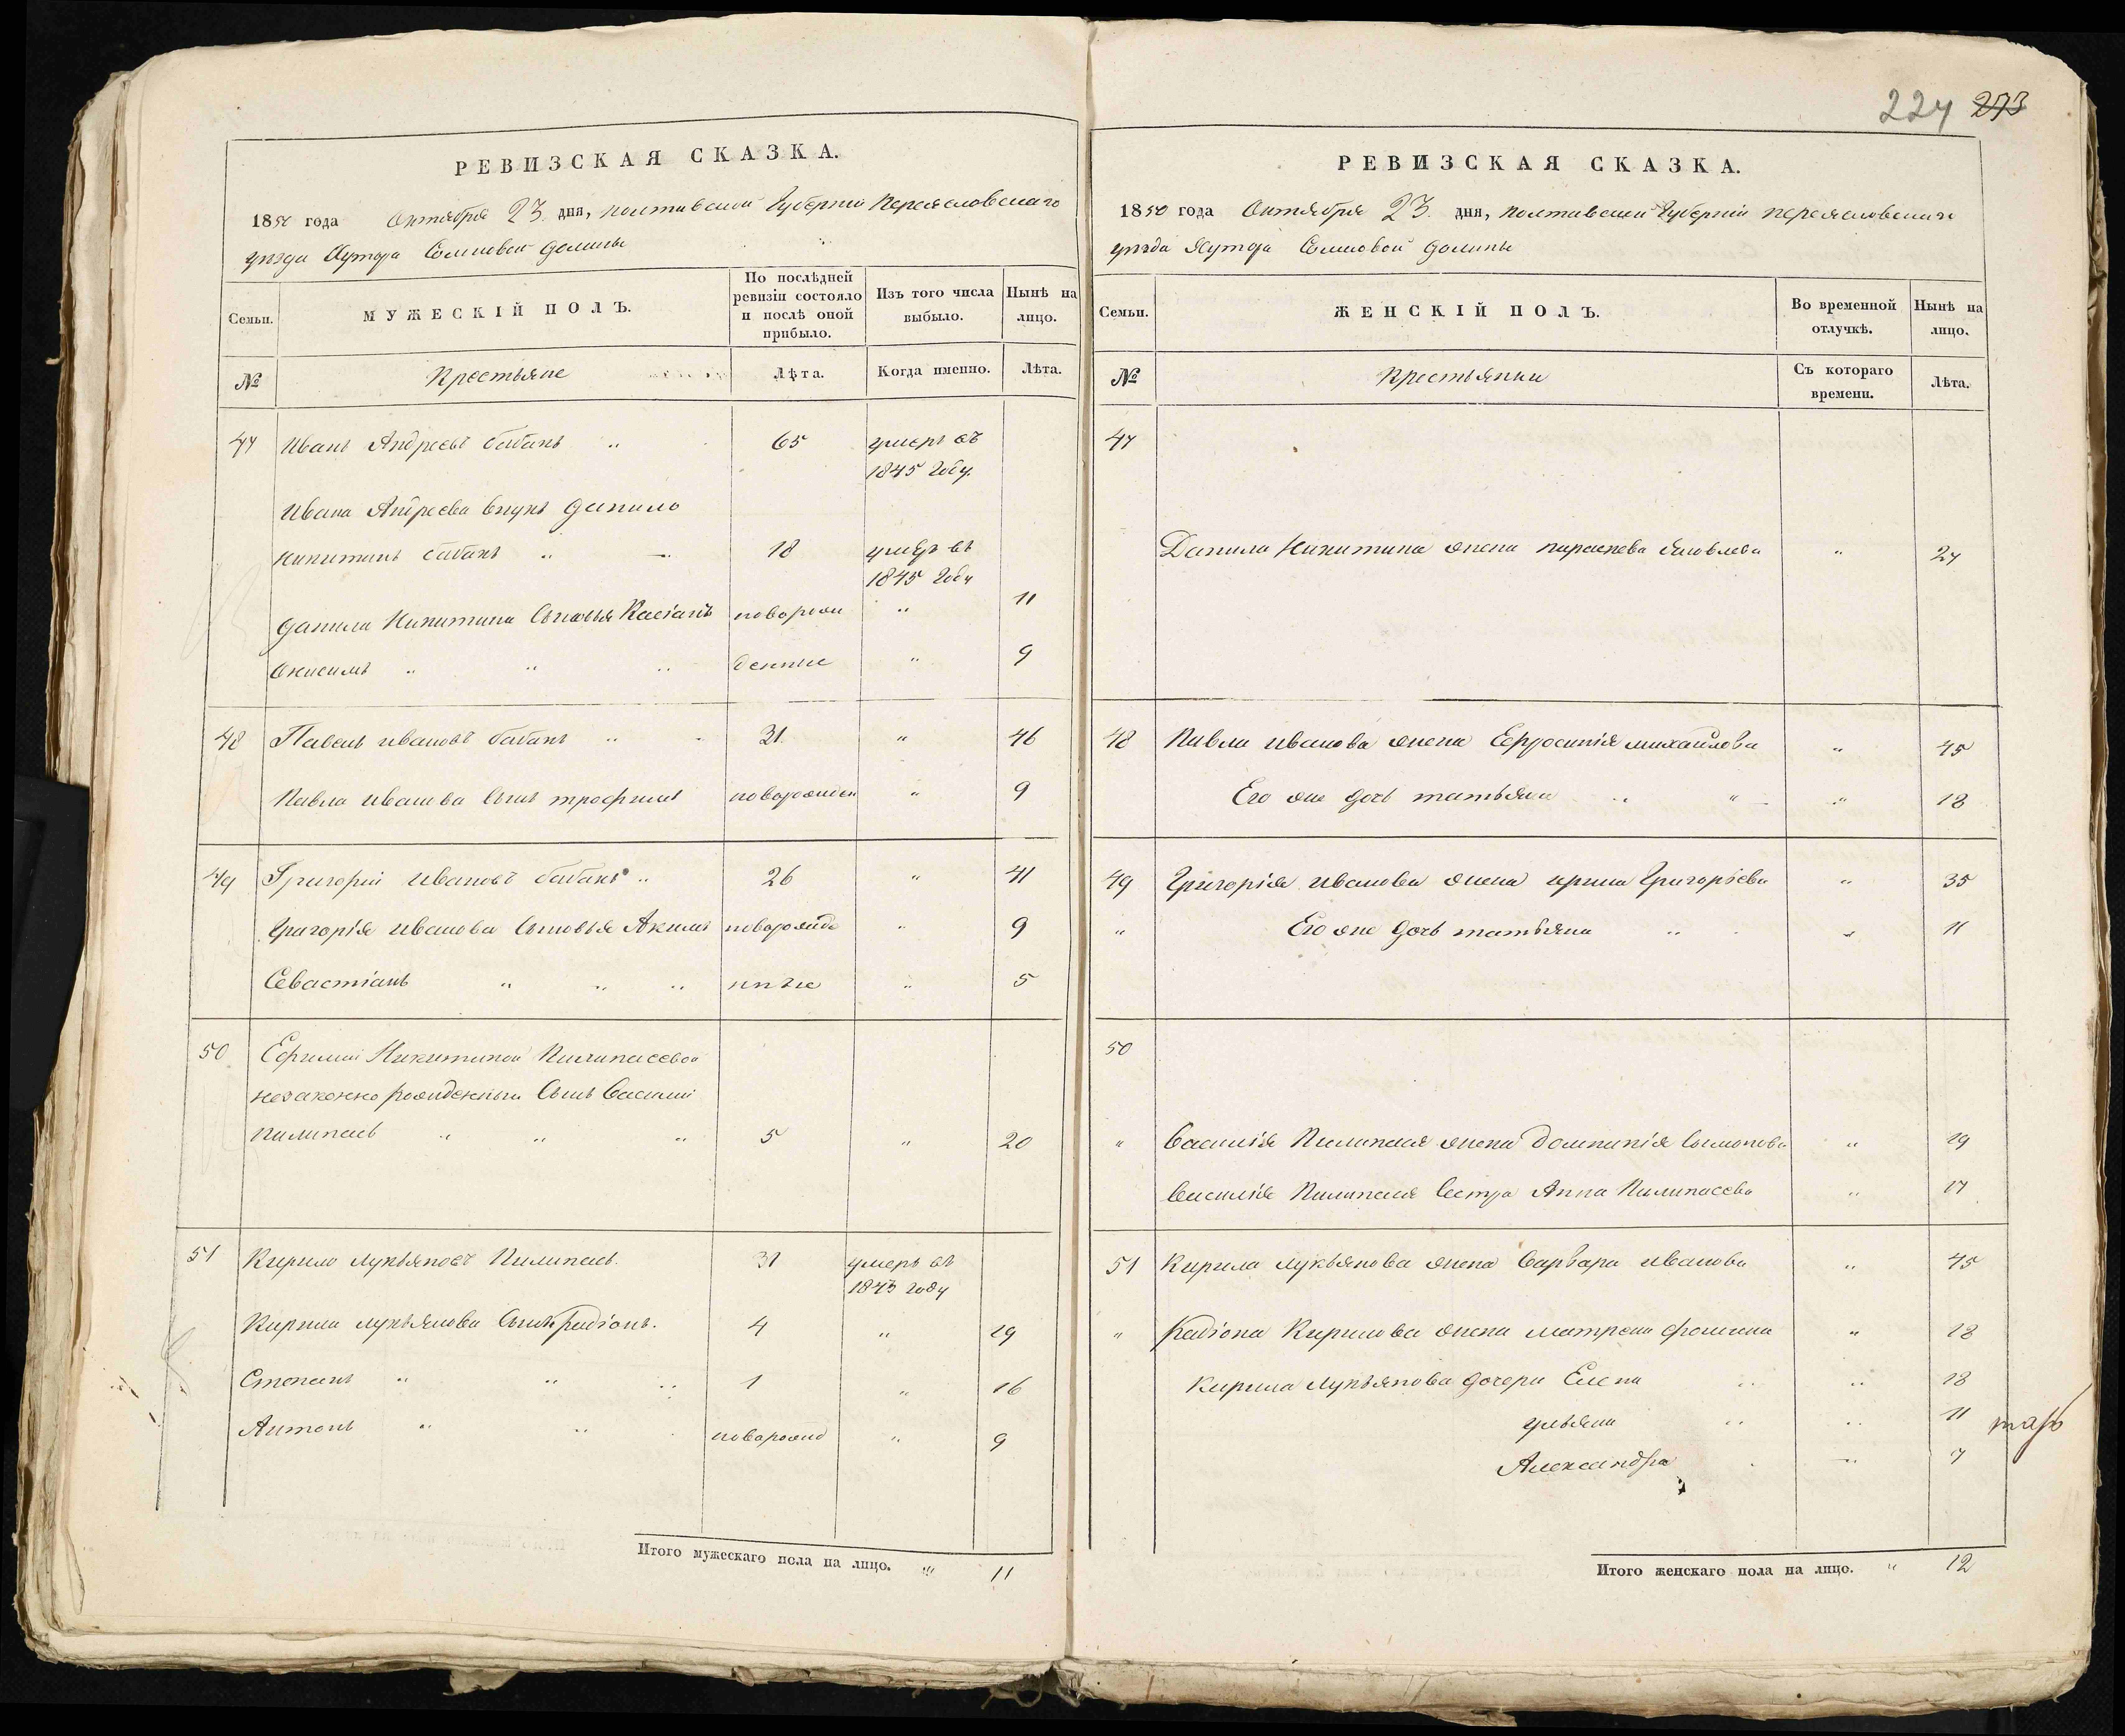 224 273
РЕВИЗСКАЯ СКАЗКА.
1850 года Октября 23 дня, полтавской Губернии Переясловского
уезда Хутора Сомковой долины
Семьи.
МУЖЕСКІЙ ПОЛЪ.
По послѣдней ревизіи состояло и послѣ оной прибыло.
Изъ того числа выбыло.
Нынѣ на лицо.
№
Крестьяне
Лѣта.
Когда именно.
Лѣта.
47 Иванъ Андреевъ бабакъ " 65 умеръ въ
1845 Году.
Ивана Андреева внукъ Данило
Никитинъ бабакъ " 18 умеръ въ
1845 Году
Данила Никитина Сыновья Касіанъ новорож " 11
Онисимъ " " " денные " 9
48 Павелъ ивановъ бабакъ " 31 " 46
Павла иванова Сынъ трофимъ новорожден " 9
49 Григорий Ивановъ бабакъ " 26 " 41
Григорія иванова Сыновья Акимъ новорожде " 9
Севастіанъ " " " нные " 5
50 Ефимии Никитиной Пилипасевой
незаконно рожденный Сынъ Василий
Пилипасъ " " " 5 " 20
51 Кирило лукьяновъ Пилипасъ. 31 умеръ въ
1843 году
Кирила лукьянова Сынъ Радіонъ. 4 " 19
Степанъ " " " 1 " 16
Антонъ " " новорожд " 9
Итого мужескаго пола на лицо. " 11
РЕВИЗСКАЯ СКАЗКА.
1850 года Октября 23 дня, полтавской Губернии переясловского
уезда Хутора Сомковой долины
Семьи.
ЖЕНСКІЙ ПОЛЪ.
Во временной отлучкѣ.
Нынѣ на лицо.
№
Крестьянки
Съ котораго времени.
Лѣта.
47
Данила Никитина жена параскева Яковлева " 27
48 Павла иванова жена Ефросинія михайлова " 45
Его же дочь татьяна " " " 18
49 Григорія иванова жена ирина Григорьева " 35
" Его же дочь татьяна " " 11
50
" Василія Пилипася жена Домникія Сымонова " 19
Василія Пилипася Сестра Анна Пилипасева " 17
51 Кирила лукьянова жена Варвара иванова " 45
" Радіона Кирилова жена матрена фомина " 18
Кирила лукьянова дочери Елена " " 18
ульяна " " 11
Александра " 7
Итого женскаго пола на лицо. " 12